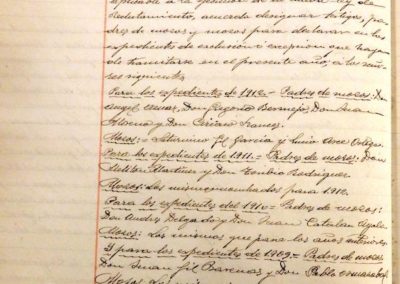 reclutamiento, acuerda designar testigos, pa-
dres de mozos y mozos para declarar en los
expedientes de exclusion o excepcion que haya
de tramitarse en el presente año, a los seño-
res siguientes
Para los expedientes de 1912.= Padres de mozos: Don
Angel Don Gregorio Bermejo, Don Juan
Don Ciriaco
Mozos:= Saturnino Gil Garcia y Lucio Arce Ortega
Para los expedientes de 1911.= Padres de mozos: Don
Martinez y Don Eusebio Rodriguez
Mozos: Los mismos nombrados para 1912.
Para los expedientes del 1910= Padres de mozos:
Don Andres Delgado y Don Juan Catalan
Mozos: Los mismos que para los años anteriores
Y para los expedientes de 1909= Padres de mozos
Don Juan Gil Barenas y Don Pablo